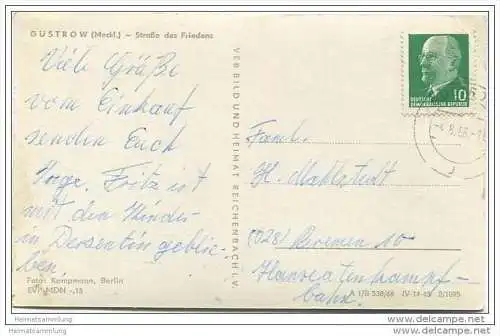 GÜSTROW (Meckl.) – Straße des Friedens
Viele Grüße
vom Einkauf
senden Euch
Inge. Fritz ist
mit den Kinder
in Dersentin geblie-
ben.
Foto: Kampmann, Berlin
EVP MDN -,15
VEB BILD UND HEIMAT REICHENBACH I. V.
10
DEUTSCHE
DEMOKRATISCHE REPUBLIK
Faml.
H. Mahlstedt
(028) Bremen 10
Hanseatenkampf-
bahn.
A 1/B 538/66 IV-14-45 2/1095
Heimatsammlung
Heimatsammlung
Heimatsammlung
Heimatsammlung